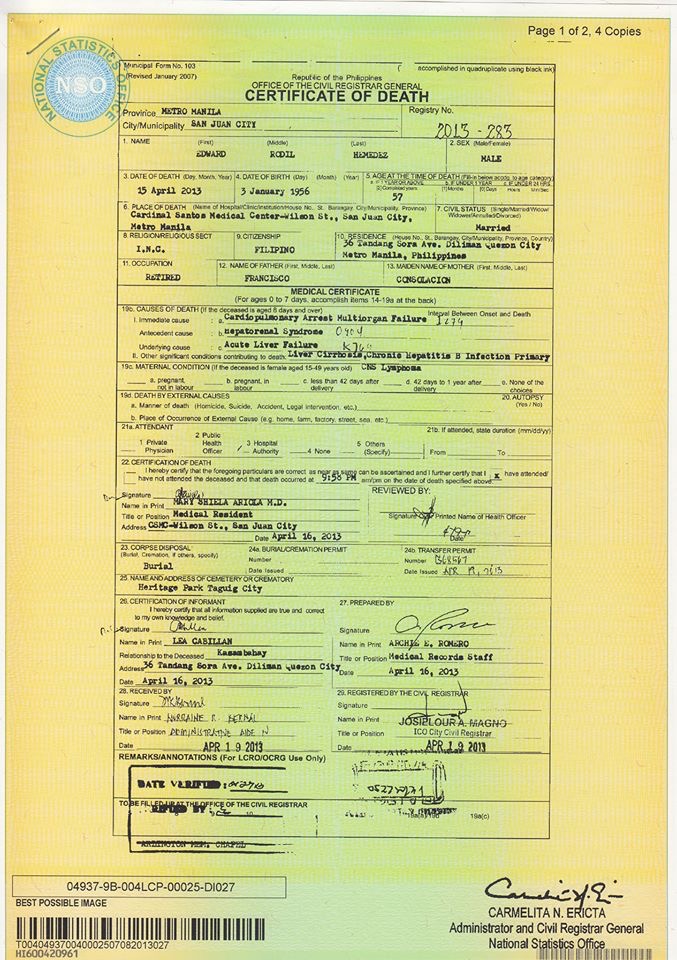 Page 1 of 2, 4 Copies
NATIONAL STATISTICS OFFICE
NSO
Municipal Form No. 103
(Revised January 2007)
( accomplished in quadruplicate using black ink)
Republic of the Philippines
OFFICE OF THE CIVIL REGISTRAR GENERAL
CERTIFICATE OF DEATH
Province METRO MANILA
City/Municipality SAN JUAN CITY
Registry No.
2013-283
1. NAME (First) (Middle) (Last)
EDWARD RODIL HEMEDEZ
2. SEX (Male/Female)
MALE
3. DATE OF DEATH (Day, Month, Year)
15 April 2013
4. DATE OF BIRTH (Day) (Month) (Year)
3 January 1956
5. AGE AT THE TIME OF DEATH (Fill-in below accdg. to age category)
a. IF 1 YEAR OR ABOVE b. IF UNDER 1 YEAR c. IF UNDER 24 HRS
[2] Completed years [1] Months [0] Days Hours Min/Sec
57
6. PLACE OF DEATH (Name of Hospital/Clinic/Institution/House No., St. Barangay, City/Municipality, Province)
Cardinal Santos Medical Center-Wilson St., San Juan City,
Metro Manila
7. CIVIL STATUS (Single/Married/Widow/
Widower/Annulled/Divorced)
Married
8. RELIGION/RELIGIOUS SECT
I.N.C.
9. CITIZENSHIP
FILIPINO
10. RESIDENCE (House No., St. Barangay, City/Municipality, Province, Country)
36 Tandang Sora Ave. Diliman Quezon City
Metro Manila, Philippines
11. OCCUPATION
RETIRED
12. NAME OF FATHER (First, Middle, Last)
FRANCISCO
13. MAIDEN NAME OF MOTHER (First, Middle, Last)
CONSOLACION
MEDICAL CERTIFICATE
(For ages 0 to 7 days, accomplish items 14-19a at the back)
19b. CAUSES OF DEATH (If the deceased is aged 8 days and over)
Interval Between Onset and Death
I. Immediate cause : a. Cardiopulmonary Arrest Multiorgan Failure
Antecedent cause : b. Hepatorenal Syndrome
Underlying cause : c. Acute Liver Failure
II. Other significant conditions contributing to death: Liver Cirrhosis, Chronic Hepatitis B Infection Primary
CNS Lymphoma
19c. MATERNAL CONDITION (If the deceased is female aged 15-49 years old)
a. pregnant, not in labour
b. pregnant, in labour
c. less than 42 days after delivery
d. 42 days to 1 year after delivery
e. None of the choices
19d. DEATH BY EXTERNAL CAUSES
a. Manner of death (Homicide, Suicide, Accident, Legal intervention, etc.)
b. Place of Occurrence of External Cause (e.g. home, farm, factory, street, sea, etc.)
20. AUTOPSY
(Yes / No)
21a. ATTENDANT
1 Private Physician
2 Public Health Officer
3 Hospital Authority
4 None
5 Others (Specify)
21b. If attended, state duration (mm/dd/yy)
From To
22. CERTIFICATION OF DEATH
I hereby certify that the foregoing particulars are correct as near as same can be ascertained and I further certify that I x have attended/
have not attended the deceased and that death occurred at 9:58 PM am/pm on the date of death specified above.
Signature
Name in Print MARY SHIELA ARICEA M.D.
Title or Position Medical Resident
Address CSMC-Wilson St., San Juan City
Date April 16, 2013
REVIEWED BY:
Signature Over Printed Name of Health Officer
Date
23. CORPSE DISPOSAL
(Burial, Cremation, if others, specify)
Burial
24a. BURIAL/CREMATION PERMIT
Number
Date Issued
24b. TRANSFER PERMIT
Number
Date Issued
25. NAME AND ADDRESS OF CEMETERY OR CREMATORY
Heritage Park Taguig City
26. CERTIFICATION OF INFORMANT
I hereby certify that all information supplied are true and correct
to my own knowledge and belief.
Signature
Name in Print LEA CABILLAN
Relationship to the Deceased Kasambahay
Address 36 Tandang Sora Ave. Diliman Quezon City
Date April 16, 2013
27. PREPARED BY
Signature
Name in Print ARCHIE E. ROMERO
Title or Position Medical Records Staff
Date April 16, 2013
28. RECEIVED BY
Signature
Name in Print LORRAINE R. BERNAL
Title or Position ADMINISTRATIVE AIDE IV
Date APR 19 2013
29. REGISTERED BY THE CIVIL REGISTRAR
Signature
Name in Print JOSIELOUR A. MAGNO
Title or Position ICO City Civil Registrar
Date APR 19 2013
REMARKS/ANNOTATIONS (For LCRO/OCRG Use Only)
DATE VERIFIED:
TO BE FILLED-UP AT THE OFFICE OF THE CIVIL REGISTRAR
ARLINGTON MEM. CHAPEL
19a(c)
04937-9B-004LCP-00025-DI027
BEST POSSIBLE IMAGE
T004049370040002507082013027
HI600420961
CARMELITA N. ERICTA
Administrator and Civil Registrar General
National Statistics Office